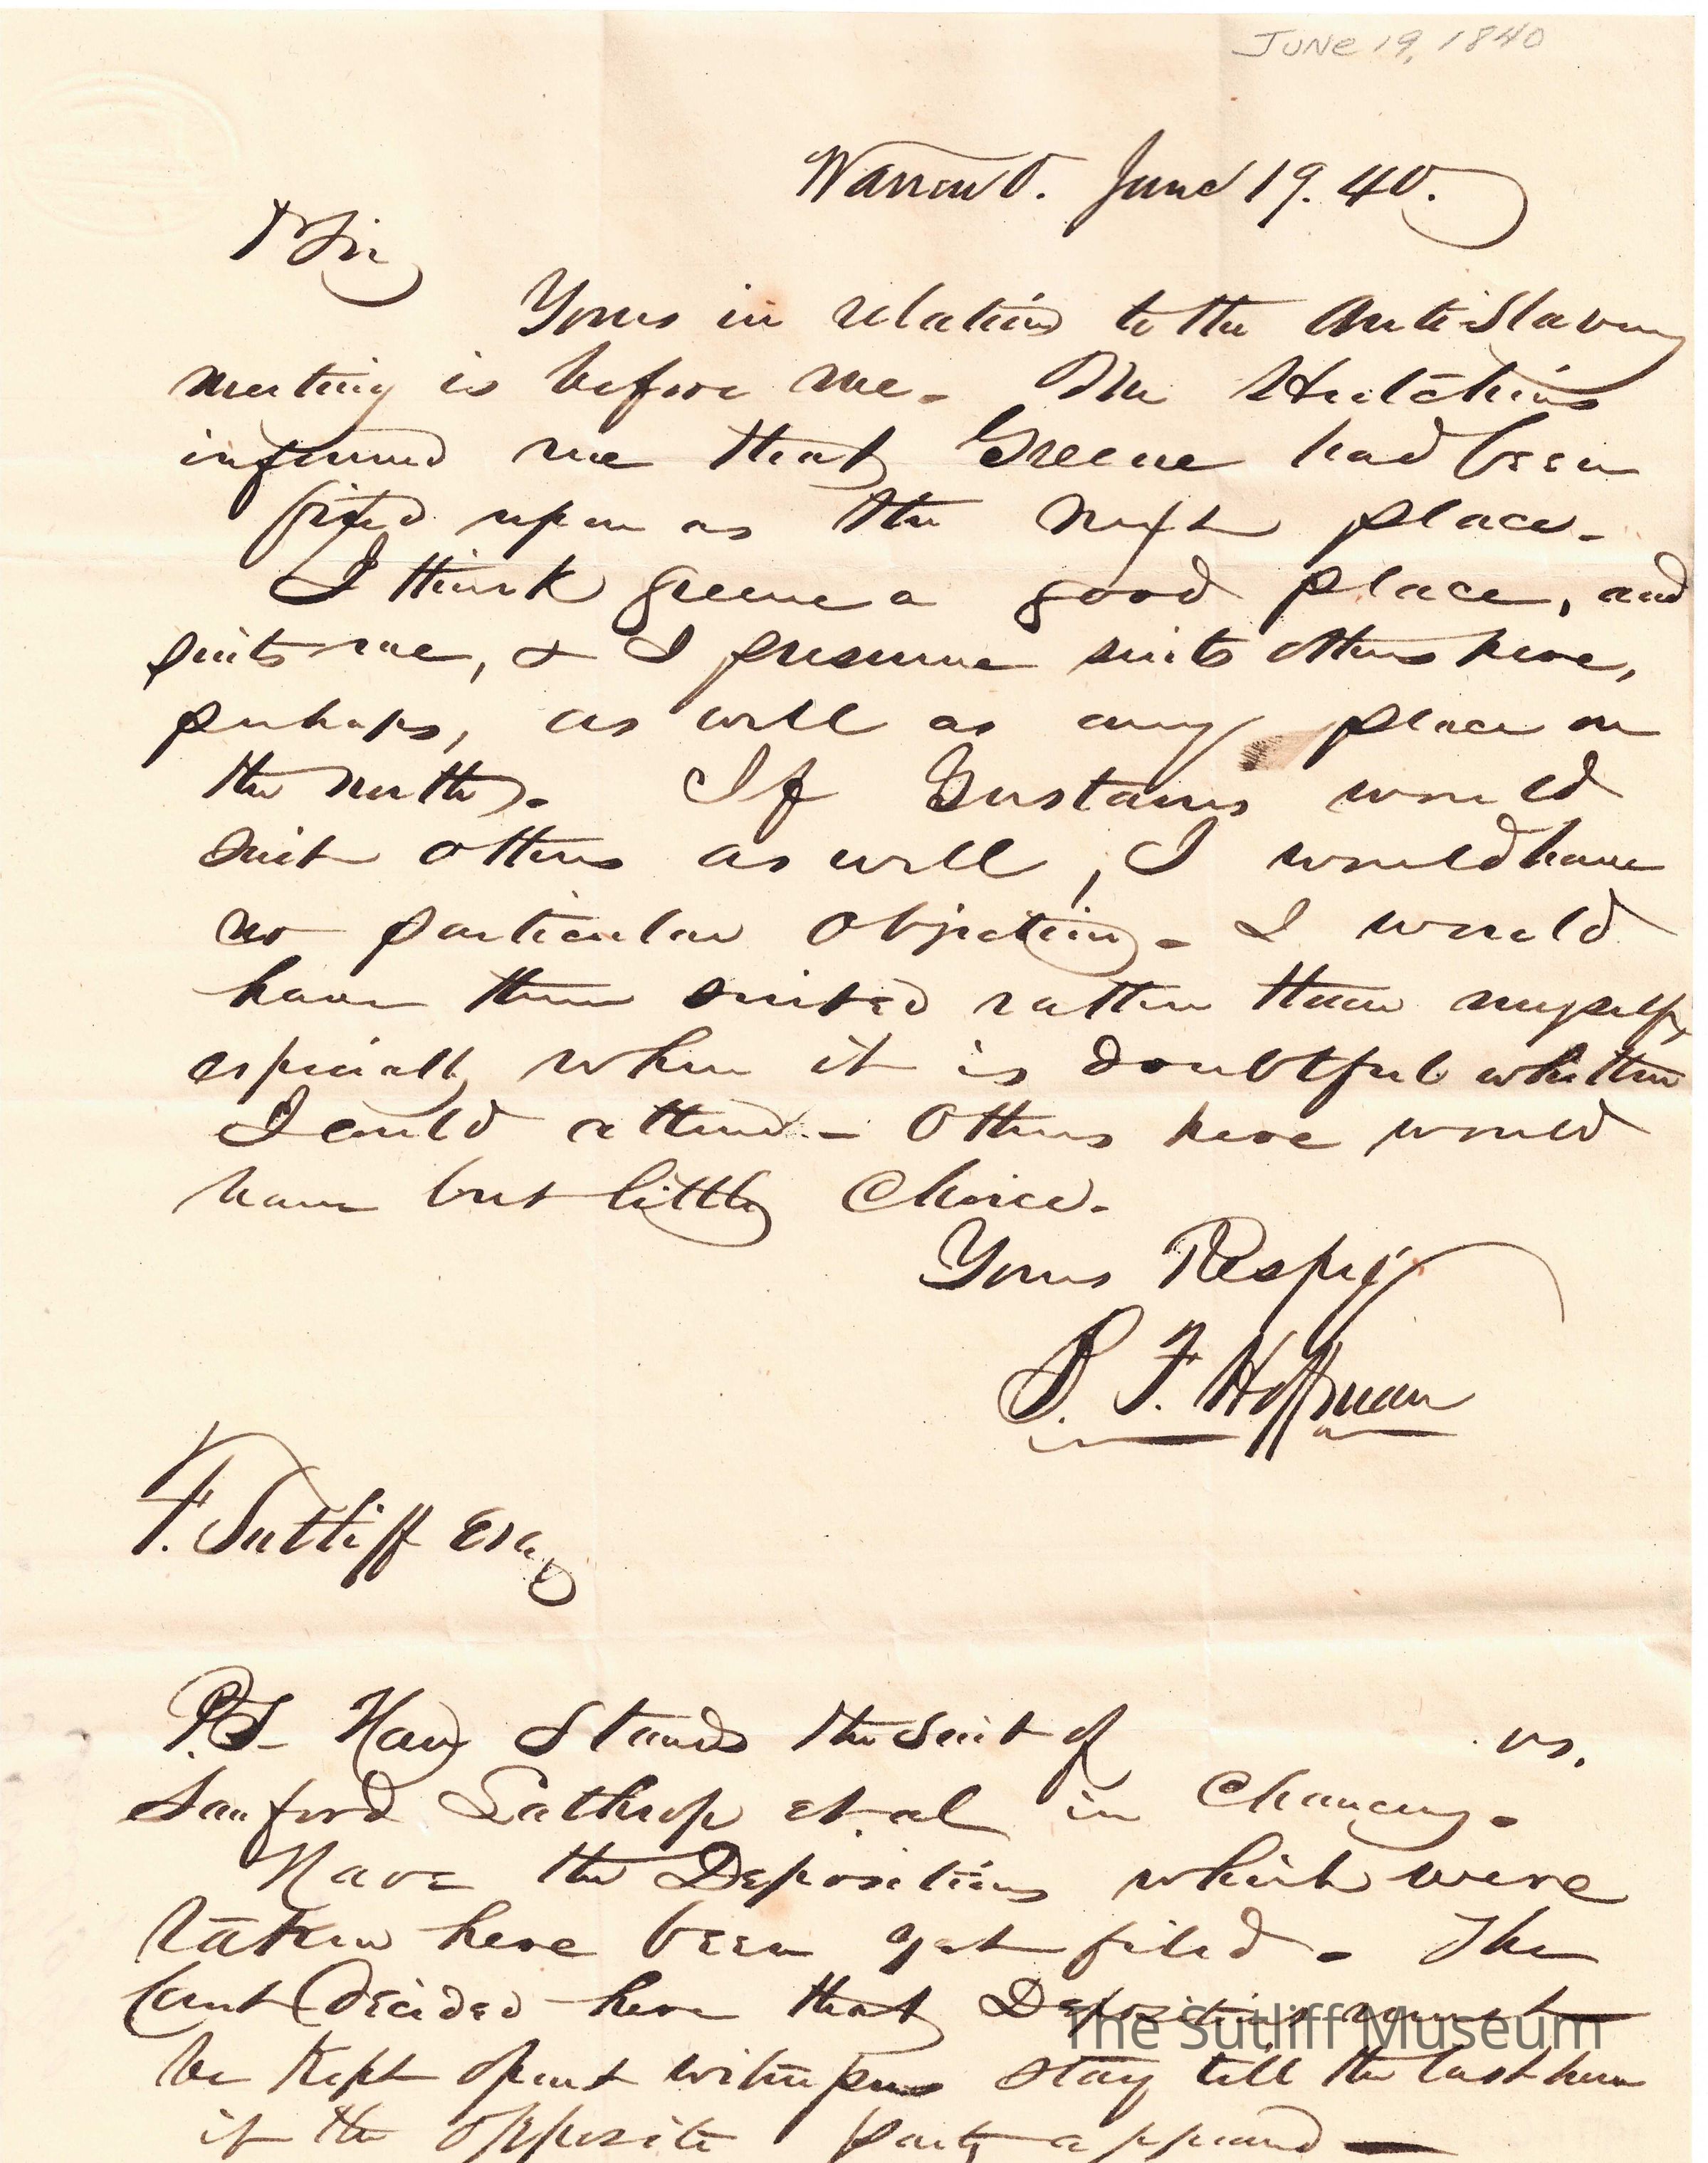 JUNE 19, 1840
Warren O. June 19. 40.
Dr Sir
Yours in relation to the Anti Slavery
meeting is before me. Mr Hutchins
informed me that Greene had been
fixed upon as the next place.
I think Greene a good place, and
suits me, & I presume suits others here,
perhaps, as well as any place on
the north. If Gustavus would
suit others as well, I would have
no particular objection. I would
have them suited rather than myself,
especially when it is doubtful whether
I could attend. Others here would
have but little choice.
Yours Respy
B. F. Hoffman
F. Sutliff Esq
P.S. How stands the suit of vs.
Sanford Lathrop et. al in Chancery.
Have the Depositions which were
taken here been yet filed. The
Court decided here that Depositions must
be kept open & witnesses stay till the last hour
if the opposite party appeared
The Sutliff Museum